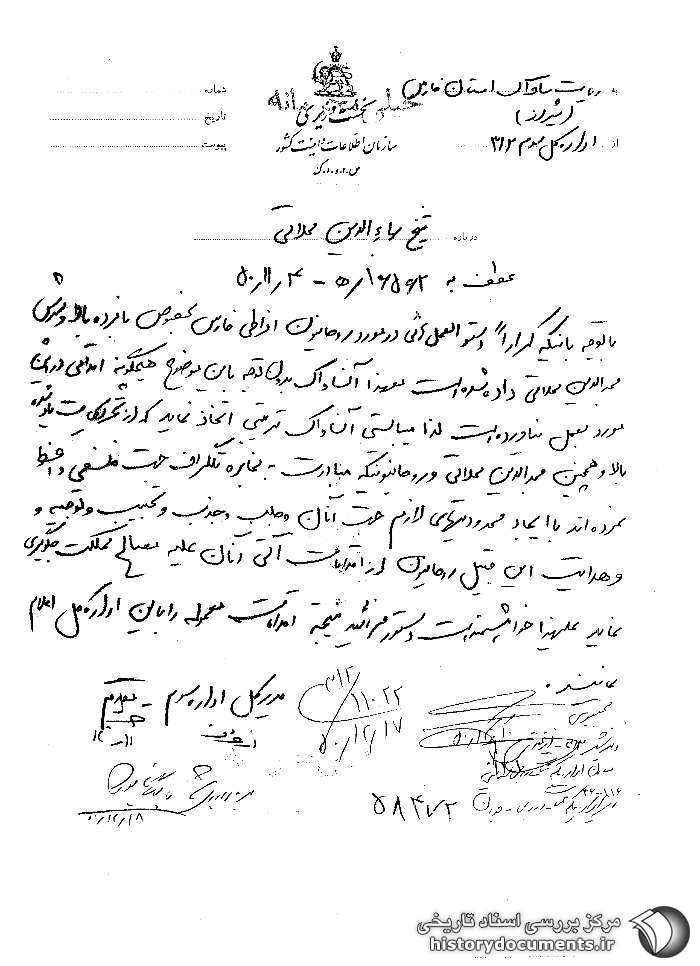 به ریاست ساواک استان فارس
(شیراز)
از اداره کل سوم ۳۱۲
شماره
تاریخ
پیوست
نخست وزیری
سازمان اطلاعات و امنیت کشور
س.ا.و.ا.ک
درباره شیخ بهاءالدین محلاتی
عطف به ۱۶۵۶۲/ه‍ - ۴/۱۱/۵۰
با توجه باینکه کراراً دستورالعمل‌هائی در مورد روحانیون افراطی فارس بخصوص نامبرده بالا و پسرش
مجدالدین محلاتی داده شده است معهذا آن ساواک بدون توجه باین موضوع هیچگونه اقدامی در این
مورد بعمل نیاورده است لذا میبایستی آن ساواک ترتیبی اتخاذ نماید که از تحریکات یاد شده
بالا و همچنین مجدالدین محلاتی و روحانیونیکه مبادرت به مخابره تلگراف جهت فلسفی و
نموده‌اند با ایجاد محدودیتهای لازم جهت آنان و جلب و جذب و تحبیب و توجیه و
و هدایت این قبیل روحانیون از اقدامات آتی آنان علیه مصالح مملکت جلوگیری
نماید علیهذا خواهشمند است دستور فرمائید نتیجه اقدامات معموله را باین اداره کل اعلام
نمایند.
مدیر کل اداره سوم - مقدم
۳۱۲
۱۱۰۲۲
۵۰/۱۲/۱۷
۵۰/۱۲/۱۸
۵۸۴۷۲
مرکز بررسی اسناد تاریخی
historydocuments.ir